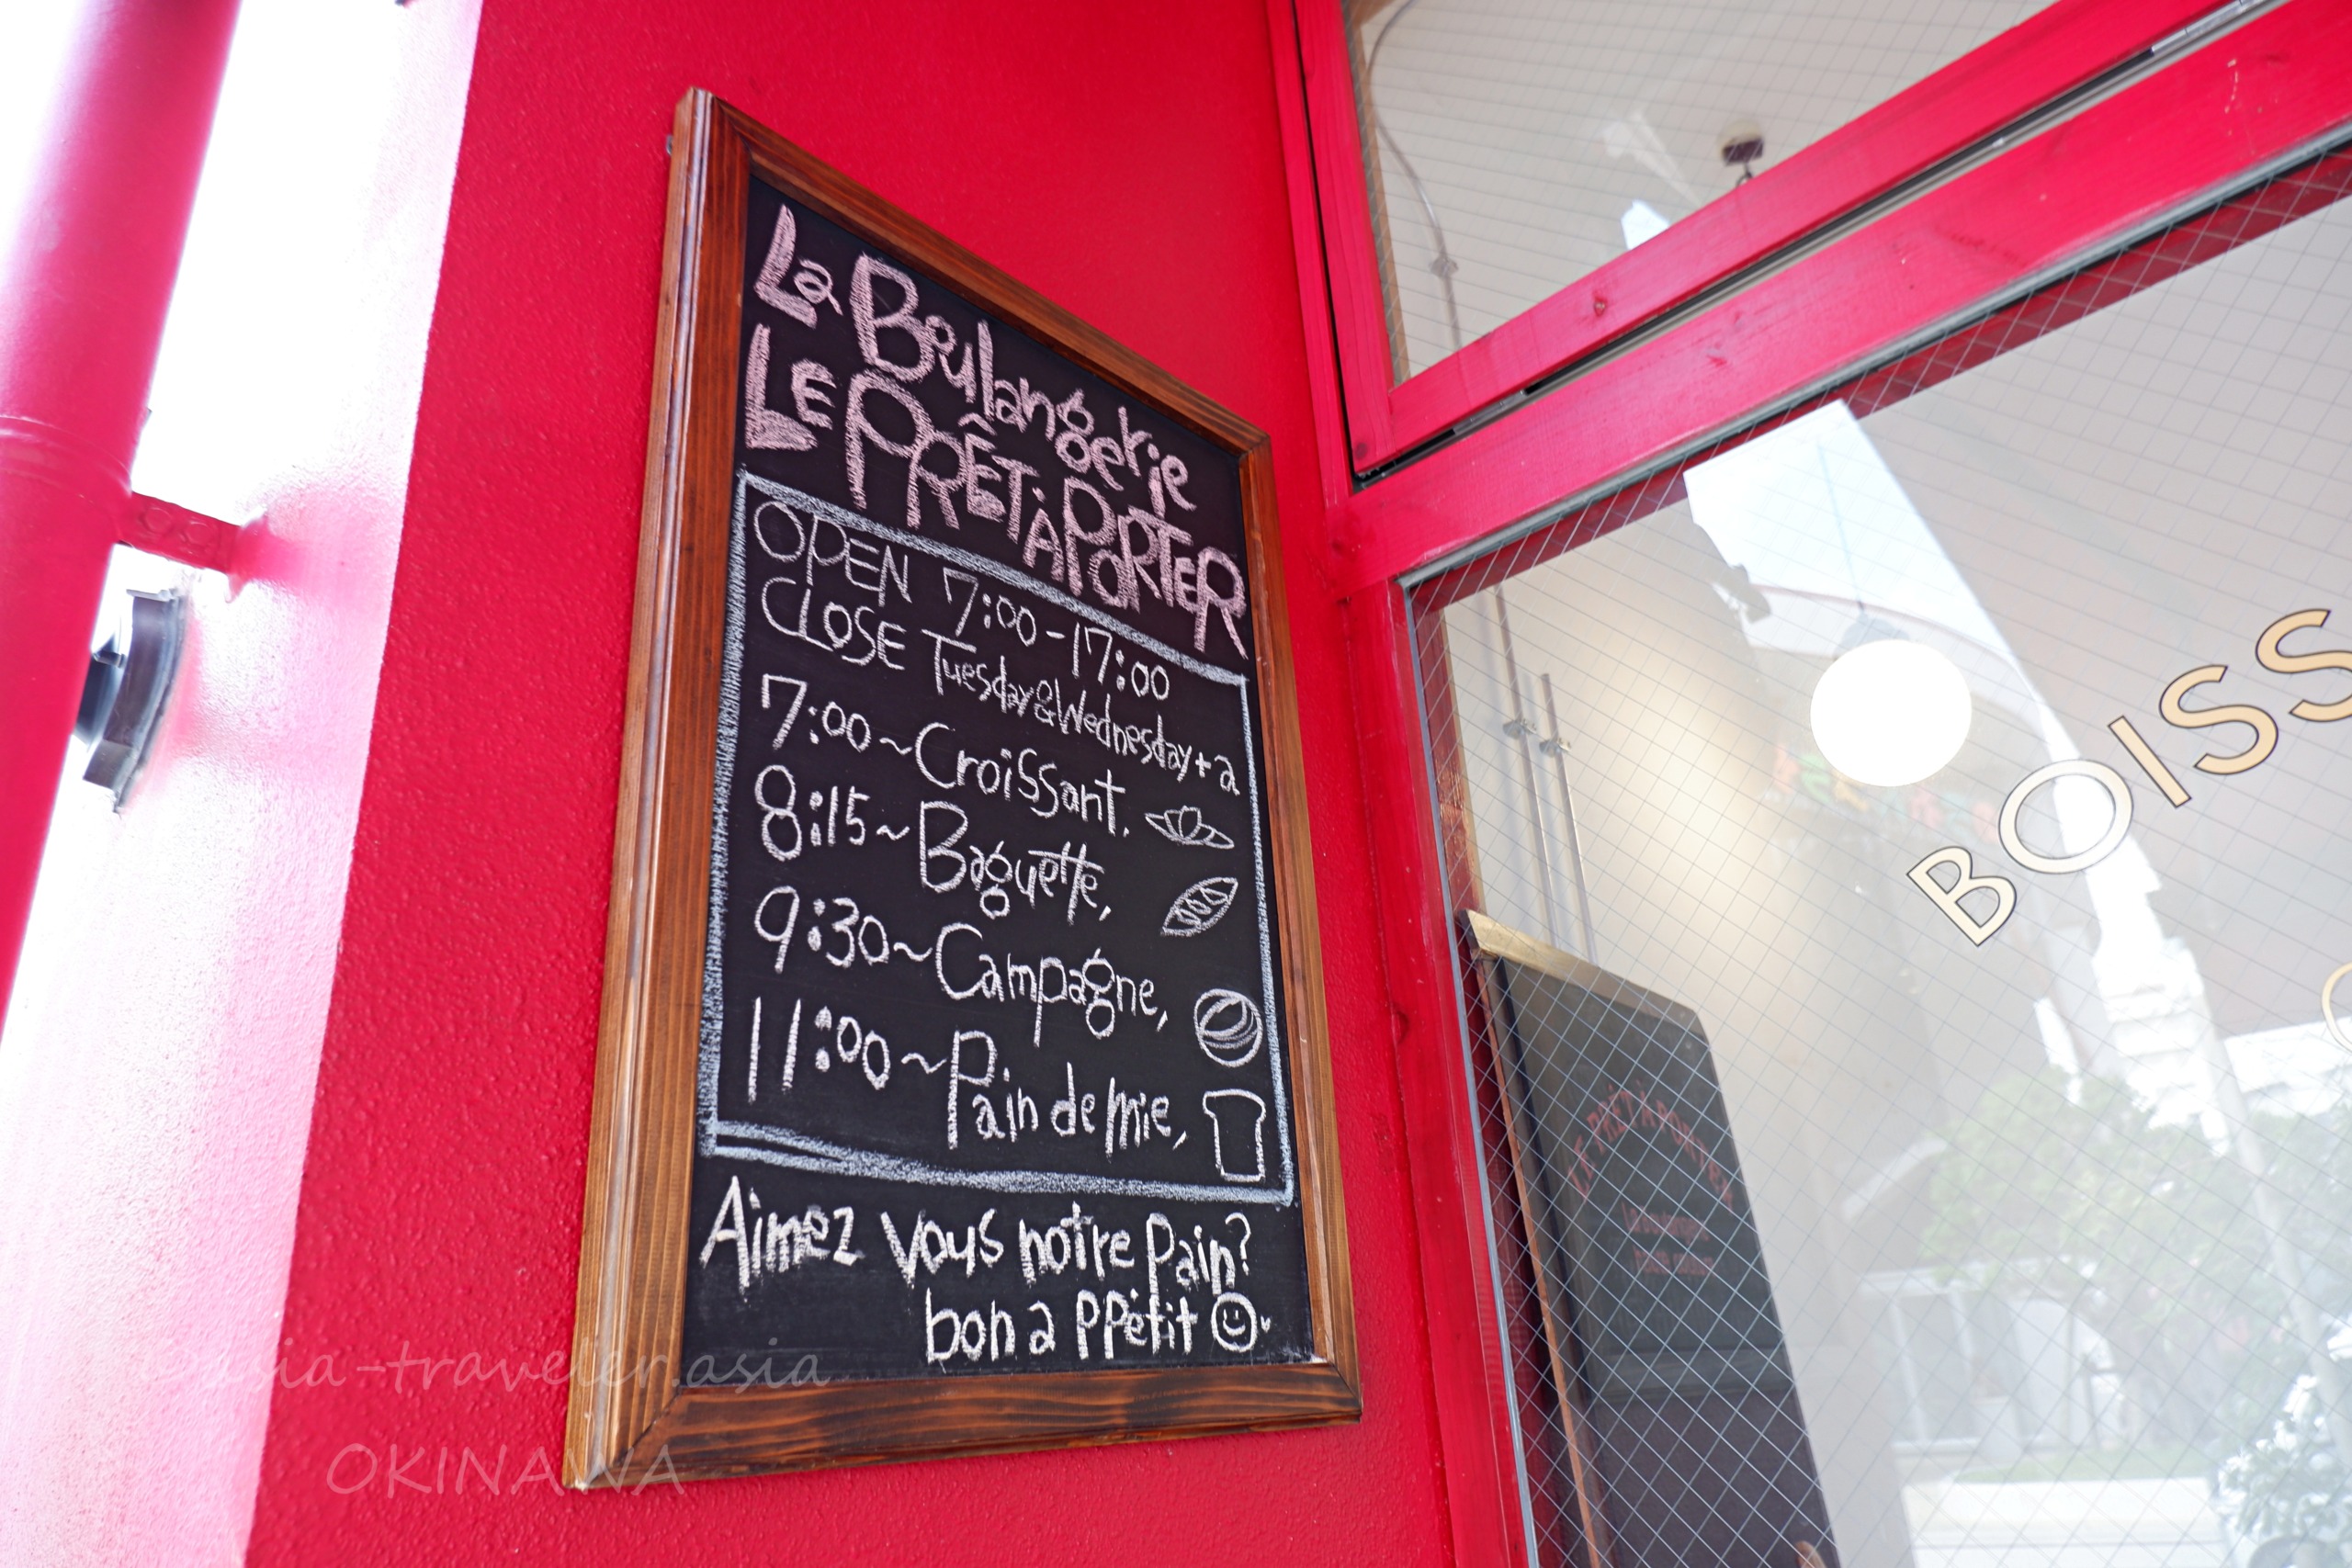 La Boulangerie
LE PRÊT À PORTER
OPEN 7:00-17:00
CLOSE Tuesday&Wednesday+a
7:00~Croissant,
8:15~Baguette,
9:30~Campagne,
11:00~Pain de mie,
Aimez vous notre pain?
bon appétit
BOISS
LE PRÊT À PORTER
asia-traveler.asia
OKINAWA